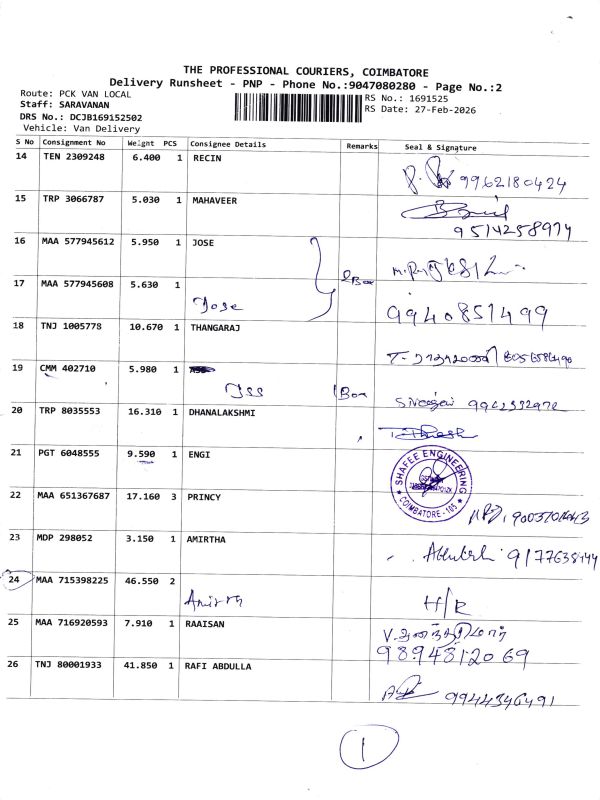 THE PROFESSIONAL COURIERS, COIMBATORE
Delivery Runsheet - PNP - Phone No.:9047080280 - Page No.:2
Route: PCK VAN LOCAL
RS No.: 1691525
Staff: SARAVANAN
RS Date: 27-Feb-2026
DRS No.: DCJB169152502
Vehicle: Van Delivery
S No Consignment No Weight PCS Consignee Details Remarks Seal & Signature
14 TEN 2309248 6.400 1 RECIN
9962180424
15 TRP 3066787 5.030 1 MAHAVEER
9514258974
16 MAA 577945612 5.950 1 JOSE
2 Box
17 MAA 577945608 5.630 1
Jose
9940851499
18 TNJ 1005778 10.670 1 THANGARAJ
19 CMM 402710 5.980 1
Jss 1 Box
20 TRP 8035553 16.310 1 DHANALAKSHMI
21 PGT 6048555 9.590 1 ENGI
SHAFEE ENGINEERING
COIMBATORE - 105
22 MAA 651367687 17.160 3 PRINCY
23 MDP 298052 3.150 1 AMIRTHA
24 MAA 715398225 46.550 2
H/R
25 MAA 716920593 7.910 1 RAAISAN
9894812069
26 TNJ 80001933 41.850 1 RAFI ABDULLA
9944346491
1